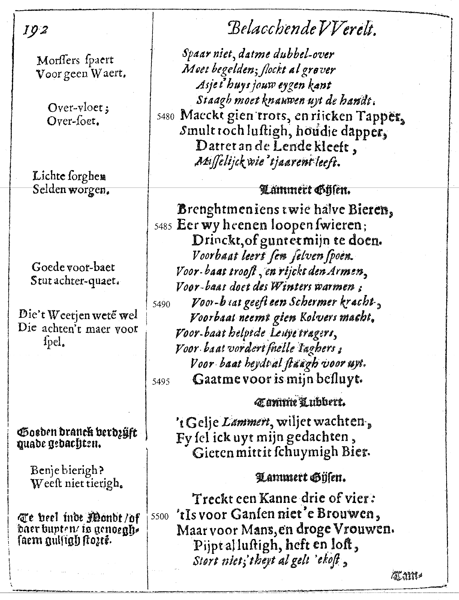 192
Belacchende VVerelt.
Morssers spaert
Voor geen Waert.
Over-vloet;
Over-soet.
Lichte sorghen
Selden worgen.
Goede voor-baet
Stut achter-quaet.
Die't Weetjen weté wel
Die achten't maer voor
spel.
Goeden dranck verdrijft
quade gedachten.
Benje bierigh?
Weest niet tierigh.
Te veel inde Mondt/of
daer buyten/ is genoegh-
saem gulsigh storté.
Spaar niet, datme dubbel-over
Moet begelden; slockt al grover
Asje t'huys jouw eygen kant
Staagh moet knauwen uyt de handt.
5480 Maeckt gien trots, en riicken Tapper,
Smult toch lustigh, houdie dapper,
Datret an de Lende kleeft,
Misselijck wie 'tjaarent leeft.
Lammert Gijsen.
Brenghtmen iens twie halve Bieren,
5485 Eer wy heenen loopen swieren;
Drinckt, of guntet mijn te doen.
Voorbaat leert sen selven spoen.
Voor-baat troost, en rijckt den Armen,
Voor-baat doet des Winters warmen;
5490 Voor-baat geeft een Schermer kracht,
Voorbaat neemt gien Kolvers macht.
Voor-baat helpt de Leuye tragers,
Voor-baat vordert snelle Iaghers;
Voor-baat heydt al staagh voor uyt.
5495 Gaatme voor is mijn besluyt.
Tamme Lubbert.
't Gelje Lammert, wiljet wachten,
Fy sel ick uyt mijn gedachten,
Gieten mittit schuymigh Bier.
Lammert Gijsen.
Treckt een Kanne drie of vier:
5500 'tIs voor Gansen niet'e Brouwen,
Maar voor Mans, en droge Vrouwen.
Pijpt al lustigh, heft en lost,
Stort niet; 'theyt al gelt 'ekost,
Tam-